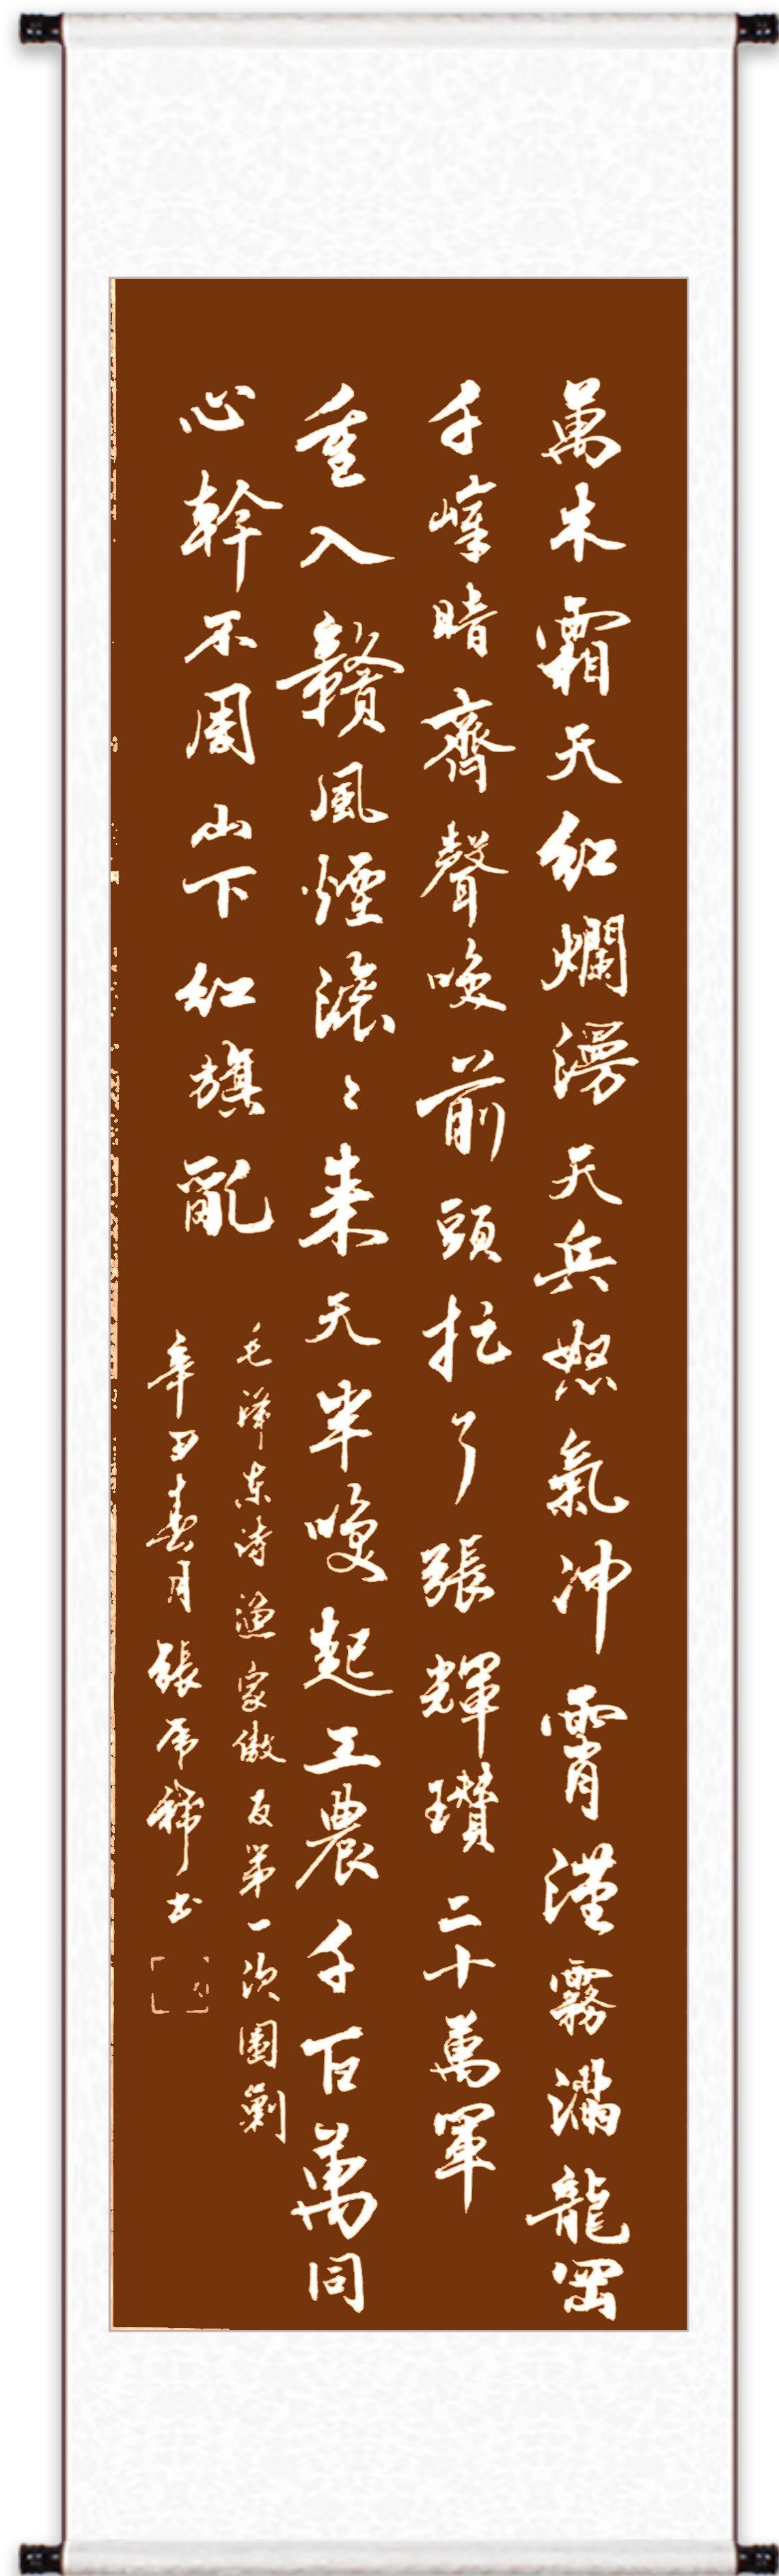 萬木霜天紅爛漫天兵怒氣冲霄漢霧滿龍岡
千嶂暗齊聲唤前頭捉了張輝瓚二十萬軍
重入贛風煙滚々来天半唤起工農千百萬同
心幹不周山下紅旗亂
毛澤东诗渔家傲反第一次圍剿
辛丑春月張书